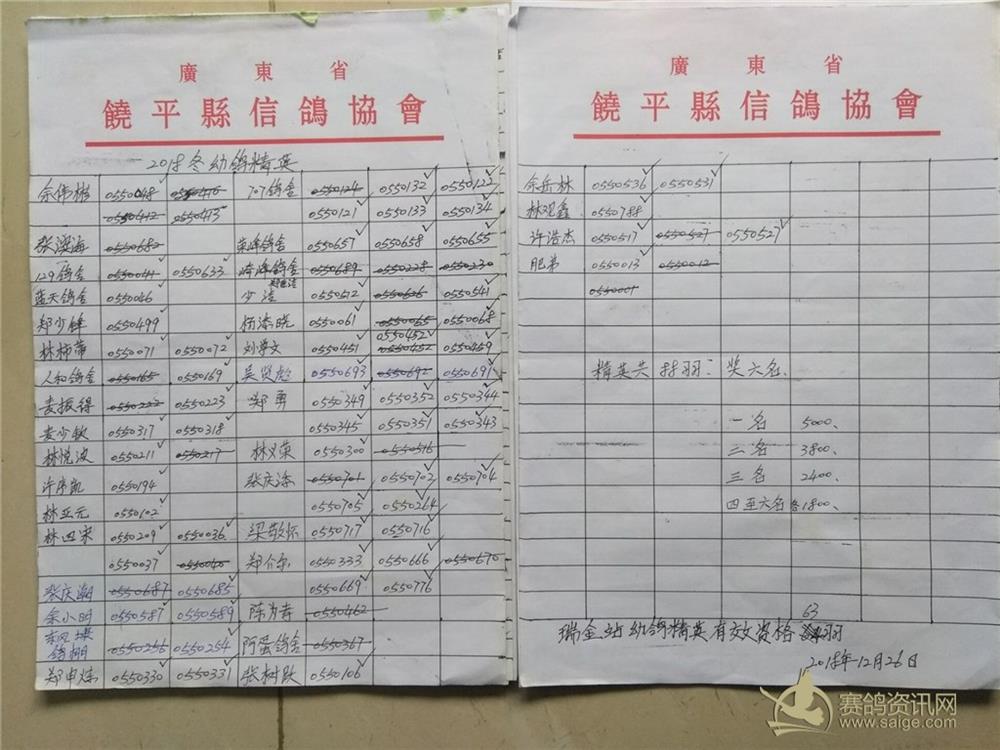 廣東省
饒平縣信鴿協會
2018冬幼鸽精英
余伟彬 0550048 0550416 707鸽舍 0550124 0550132 0550122
0550412 0550413 0550121 0550133 0550134
张滨海 0550682 荣峰鸽舍 0550657 0550658 0550655
129鸽舍 0550041 0550633 峰鸽舍 0550689 0550228 0550230
蓝天鸽舍 0550046 少洁 0550512 0550541
郑少锋 0550499 杨添晓 0550061 0550065 0550068
0550452
林柿蒂 0550071 0550072 刘学文 0550451 0550452 0550459
人和鸽舍 0550165 0550169 吴贤彪 0550693 0550692 0550691
麦振得 0550222 0550223 郑勇 0550349 0550352 0550344
麦少钦 0550317 0550318 0550345 0550351 0550343
林悦波 0550211 0550217 林义荣 0550300 0550516
许序凯 0550194 张庆添 0550701 0550702 0550704
林亚元 0550102 0550705 0550264
林四宋 0550209 0550036 梁敬怀 0550717 0550716
0550037 0550040 郑介 0550333 0550666 0550670
张庆潮 0550687 0550685 0550669 0550776
余小明 0550587 0550589 陈为存 0550462
东风
鸽棚 0550256 0550254 阿蛋鸽舍 0550367
郑申炼 0550330 0550331 张树跃 0550106
廣東省
饒平縣信鴿協會
余岳林 0550536 0550531
林观鑫 0550788
许浩杰 0550517 0550527 0550527
肥弟 0550013 0550012
0550001
精英共88羽：奖六名、
一名 5000、
二名 3800、
三名 2400、
四至六名各1800、
63
瑞金站幼鸽精英有效资格羽
2018年12月26日
赛鸽资讯网
www.saige.com